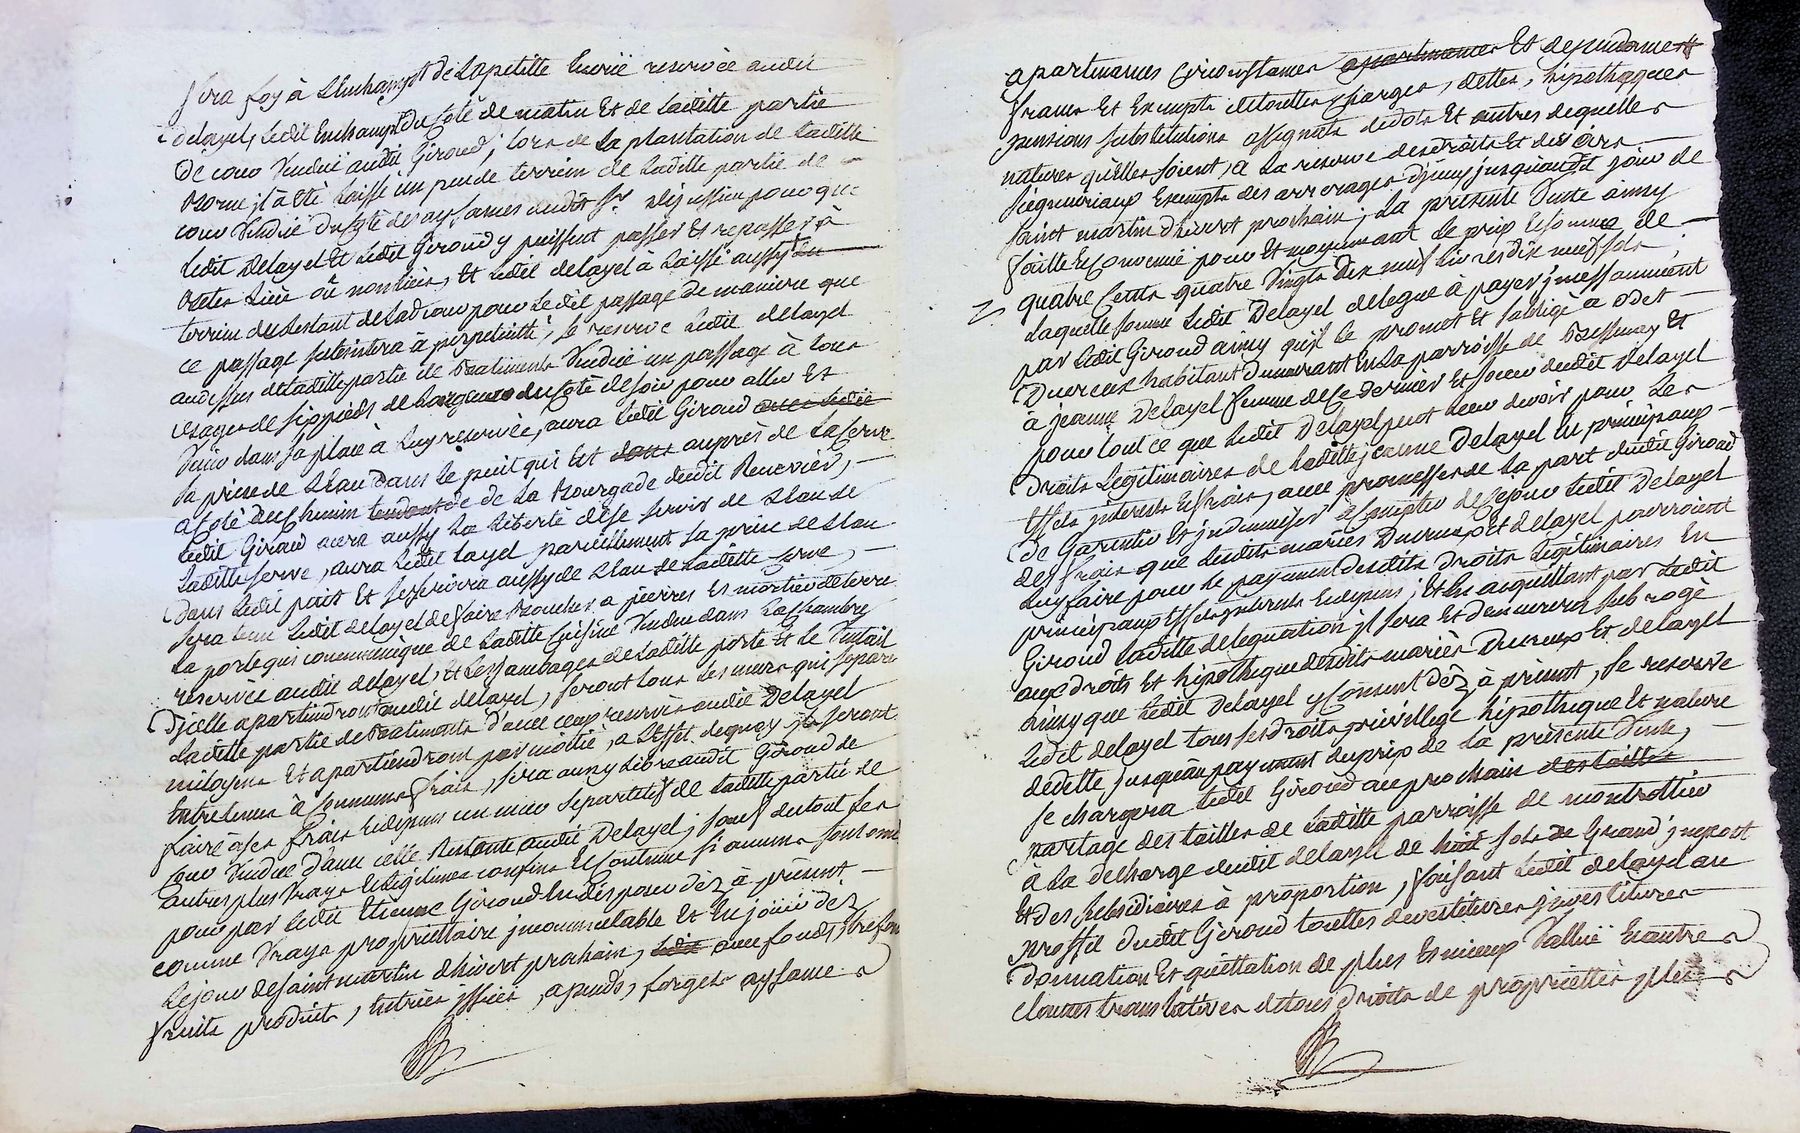 sera foy à l'Enchampt de la petitte Ecurië reservée audit
Delayel, ledit Enchampt du Coté de matin Et de laditte partie
De cour Vendüe audit Giroud; lors de la plantation de laditte
Borne il à été laissé un peu de terrein de laditte partie de
cour Vendüe du Côté des aysances dudit Sr pour que
ledit Delayel Et ledit Giroud y puissent passer Et repasser à
Betes liées où non liées, Et ledit delayel à laissé aussy du
terrein du Restant de lad cour pour ledit passage de manière que
ce passage subsistera à perpetuitté, se reserve ledit delayel
audessus de laditte partie de Batiments Vendüe un passage à tous
usages de six pieds de largeur du Coté de soir pour aller Et
Venir dans sa place à luy reservée, aura ledit Giroud avec ledit
la prise de l'Eau dans le puit qui Est dans auprès de la serve
a Coté du Chemin tendant de de la Bourgade dudit Reverdier,
ledit Giroud aura aussy la liberté de se servir de l'Eau de
laditte serve, aura ledit layel pareillement la prise de l'Eau
Dans ledit puit Et se servira aussy de l'Eau de laditte serve,
sera tenu ledit delayel de faire Boucher a pierres Et mortier de terre
la porte qui communique de laditte Cuisine Vendue dans la Chambre
reservée audit delayel, Et les jambages de laditte porte Et le Vantail
D'icelle apartiendront audit delayel, seront tous les murs qui separe
laditte partie de Batiments d'avec ceux reservés audit Delayel
mitoyens Et apartiendront par moitié, a l'Effet dequoy ils seront
Entretenus à Communs frais, sera aussy libre audit Giroud de
faire à ses frais Et depens un mur separatif de laditte partie de
Cour Vendue d'avec celle Restante audit Delayel; sauf du tout ses
autres plus Vrays Et legitimes confins Et Contenue si aucuns sont omis
pour par ledit Etienne Giroud En disposer dèz à présent
comme Vraye proprietaire incommutable Et En joüir dèz
le jour de saint martin d'hivert prochain, ledit avec fonds, tresfonds
fruits produits, Entrées issües, apends, forges aysances
apartenances Circonstances apartenances Et dependances
francs Et Exempts de touttes Charges, dettes, hipothèques
pensions substitutions assignats de dots Et autres de quelles
natures qu'elles soient, a la reserve des droits Et devoirs
seigneuriaux Exempts des arrerages d'jceux jusquaudit jour de
saint martin d'hivert prochain; la présente Vente ainsy
faitte Et Convenüe pour Et moyennant le prix Et somme de
quatre Cents quatre Vingts Dix neuf livres dix neuf sols;
laquelle somme ledit Delayel delegue à payer incessamment
par ledit Giroud ainsy qu'il le promet Et s'oblige a Odet
Ducreux habitant demeurant En la parroisse de Bessenay Et
à jeanne Delayel femme de Ce dernier Et soeur dudit Delayel
pour tout ce que ledit Delayel peut leur devoir pour les
Droits légitimaires de laditte jeanne Delayel En principaux
Effets interests Et frais, avec promesse de la part dudit Giroud
de Garentir Et indemniser à compter de ce jour ledit Delayel
des frais que lesdits mariés Ducreux Et delayel pourroient
luy faire pour le payement desdits droits légitimaires En
principaux Effets interests Et depens; Et En acquittant par ledit
Giroud laditte deleguation il sera Et demeurera subrogé
aux droits Et hipothèque desdits mariés Ducreux Et delayel
ainsy que ledit Delayel y Consent dèz à présent, se reserve
ledit delayel tous ses droits privillege hipothèque Et nature
de dette jusqu'au payement du prix de la présente Vente,
se chargera ledit Giroud au prochain des tailles
partage des tailles de laditte parroisse de montrottier
a la decharge dudit delayel de huit sols de Grand impost
Et des subsidiaires à proportion, faisant ledit delayel au
proffit dudit Giroud touttes devestitures investitures
donnation Et quittation de plus Et mieux Vallüe Et autre
clauses translatives de tous droits de proprietté plus